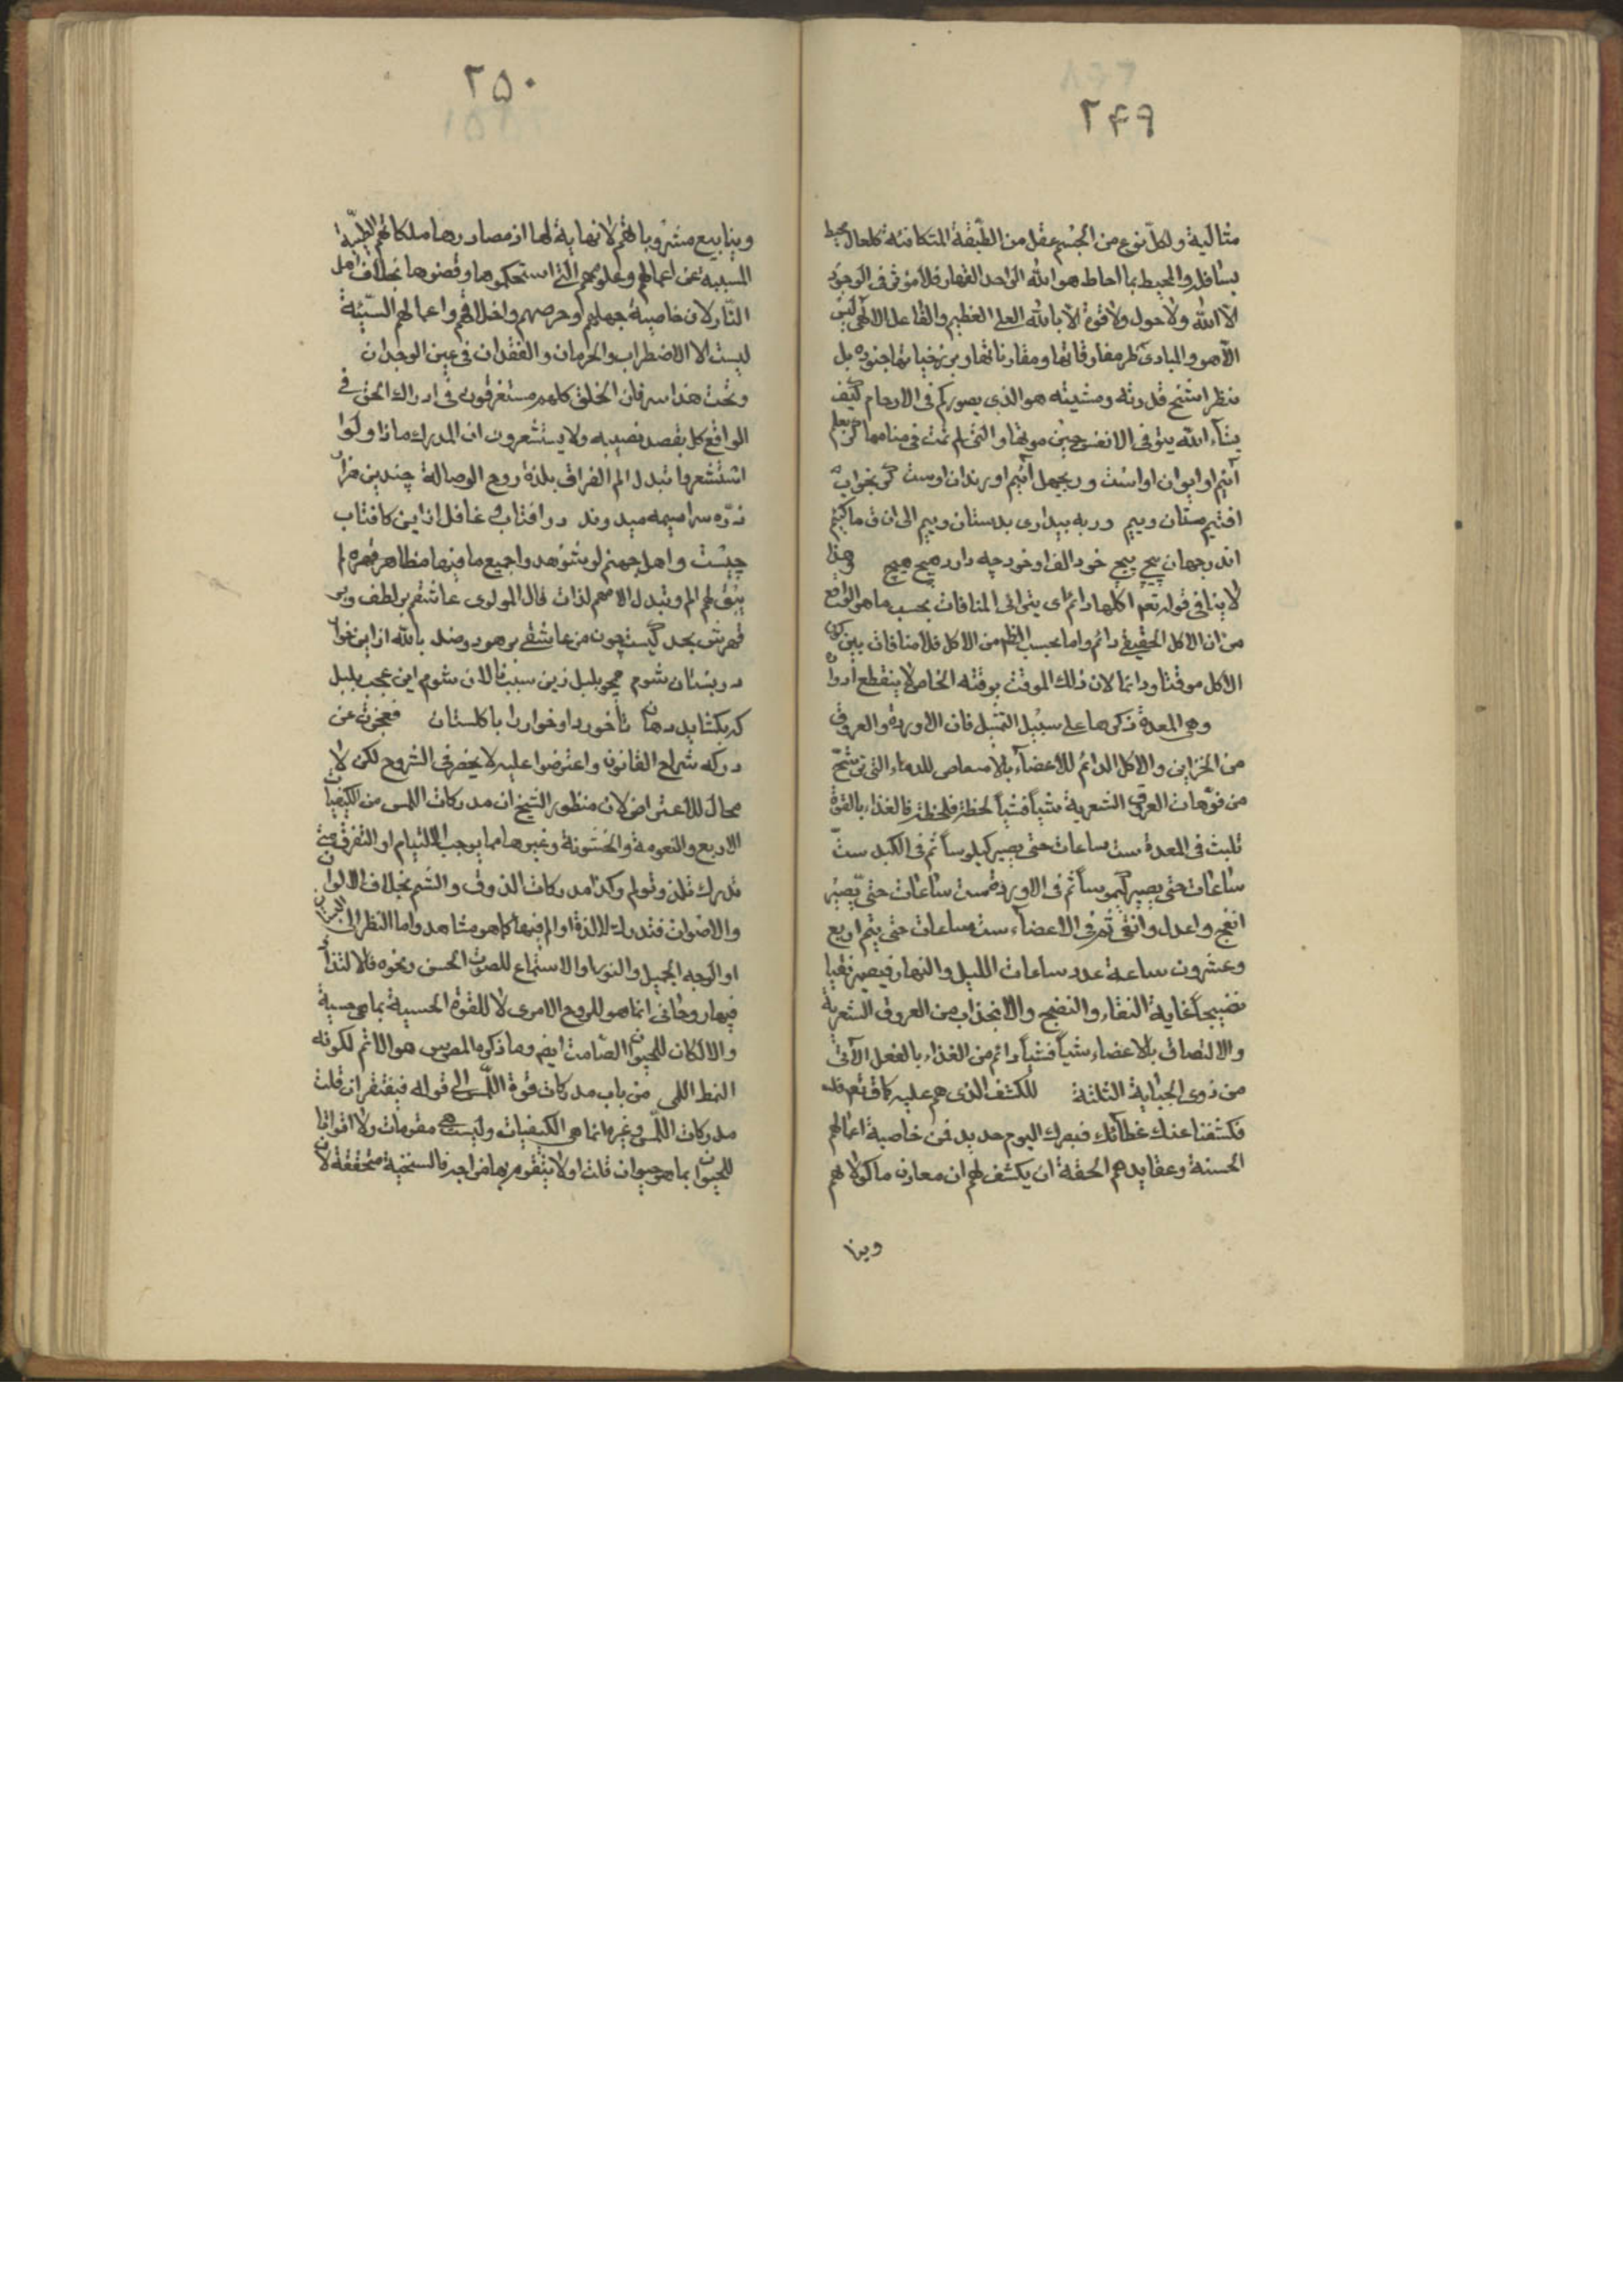 ۲۴۹
مثالية ولكل نوع من الجسم عقل من الطبقة المتكافئة كلعال محيط
بسافل والمحيط بما احاط هو الله الواحد القهار فلا مؤثر فى الوجود
الا الله ولا حول ولا قوة الا بالله العلى العظيم والفاعل الالهى ليس
الا هو والمبادى طر مفارقاتها ومقارناتها وبرزخياتها جنوده بل
بنظر اشمخ قدرته ومشيته هو الذى يصوركم فى الارحام كيف
يشاء الله يتوفى الانفس حين موتها والتى لم تمت فى منامها گر بعلم
آئيم او ايوان اوست ور بجهل آئيم او زندان اوست گر بخواب
افتيم مستان وييم ور به بيدارى بدستان وييم الى ان ق ما كييم
اندر جهان پيچ پيچ خود الف او خود چه دارد هيچ هيچ وهذا
لا ينافى قوله تعم اكلها دائم اى يترائى المنافات بحسب ما هو الواقع
من ان الاكل الحقيقى دائم واما بحسب الظم من الاكل فلا منافات بين كون
الاكل موقتا ودائما لان ذلك الموقت بوقته الخاص لا ينقطع
وهى المعدة ذكرها على سبيل التمثيل فان الاوردة والعروق
من الخزاين والاكل الدائم للاعضاء بالامتصاص للدماء التى ترشح
من فوهات العروق الشعرية شيأ فشيأ لحظة فلحظة فالغذاء بالقوة
تلبث فى المعدة ست ساعات حتى يصير كيلوسا ثم فى الكبد ست
ساعات حتى يصير كيموسا ثم فى الاوردة ست ساعات حتى يصير
انضج واعدل وانقى ثم فى الاعضاء ست ساعات حتى يتم اربع
وعشرون ساعة عدد ساعات الليل والنهار فيصير نقيا
نضيجا غاية النقاء والنضج والانجذاب من العروق الشعرية
والالتصاق بالاعضاء شيأ فشيأ دائم من الغذاء بالفعل الآتى
من ذوى الجباية الثلثة للكشف الذى هم عليه كما ق تعم
فكشفنا عنك غطائك فبصرك اليوم حديد فمن خاصية اعمالهم
الحسنة وعقايدهم الحقة ان يكشف لهم ان معادن ماكولاتهم
وينا
۲۵۰
وينابيع مشروباتهم لا نهاية لها اذ مصادرها ملكاتهم الطيبة
المسببه عن اعمالهم وعلومهم التى استحكموها وقضوها بخلاف اهل
النار لان خاصية جهلهم وحرصهم واخلاقهم واعمالهم السيئة
ليست الا الاضطراب والحرمان والفقدان فى عين الوجدان
وتحت هذا سر فان الخلق كلهم مستغرقون فى ادراك الحق فى
الواقع كل بقصد نصيبه ولا يستشعرون ان المدرك ماذا ولو
استشعروا تبدل الم الفراق بلذة روح الوصال چندين هزار
ذره سراسيمه ميدوند در افتاب و غافل ازاين كافتاب
چيست واهل جهنم لو شوهدوا جميع ما فيها مظاهر قهره لم
يبق لهم الم وتبدل الامهم لذات قال المولوى عاشقم بر لطف وبر
قهرش بجد كيست چون من عاشقى بر هر دو ضد بالله ار اين خار
در بستان شوم همچو بلبل زين سبب نالان شوم اين عجب بلبل
كه بگشايد دهان تا خورد او خار را با گلستان فعجزت عن
دركه شراح القانون واعترضوا عليه لا يخفى فى الشروح لكن لا
مجال للاعتراض لان منظور الشيخ ان مدركات اللمس من الكيفيات
الاربع والنعومة والخشونة وغيرها مما يوجب الالتيام او التفرق
تدرك تلذ وتولم وكذا مدركات الذوق والشم بخلاف الالوان
والاصوات فتدرك ولا لذة او الم فيها كما هو مشاهد واما النظر الى
او الوجه الجميل والنور او الاستماع للصوت الحسن ونحوه فالالتذاذ
فيها روحانى انما هو للروح الامرى لا للقوة الحسيية بما هى حسية
والا لكان للحيوان الصامت ايضم وما ذكره المص س هو الاتم لكونه
النمط اللمى من باب مدركات قوة اللمس الى قوله فيفتقر ان قلت
مدركات اللمس وغيرها انما هى الكيفيات وليست هى مقومات ولا اقواتا
للحيوان بما هو حيوان قلت اولا يتقوم بها مزاجه فالسنخية متحققة لان